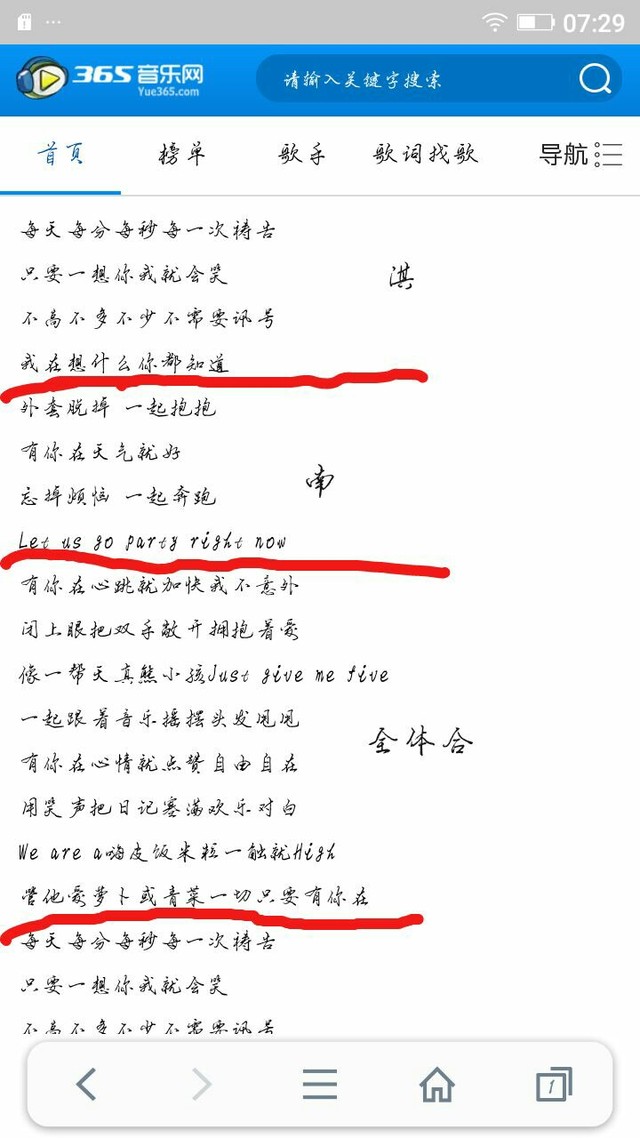 07:29
365音乐网
Yue365.com
请输入关键字搜索
首页 榜单 歌手 歌词找歌 导航
每天每分每秒每一次祷告
只要一想你我就会笑
淇
不高不多不少不需要讯号
我在想什么你都知道
外套脱掉 一起抱抱
有你在天气就好
南
忘掉烦恼 一起奔跑
Let us go party right now
有你在心跳就加快我不意外
闭上眼把双手敞开拥抱着爱
像一帮天真熊小孩Just give me five
一起跟着音乐摇摆头发甩甩
全体合
有你在心情就点赞自由自在
用笑声把日记塞满欢乐对白
We are a嗨皮饭米粒一触就High
管他爱萝卜或青菜一切只要有你在
每天每分每秒每一次祷告
只要一想你我就会笑
不高不多不少不需要讯号
1